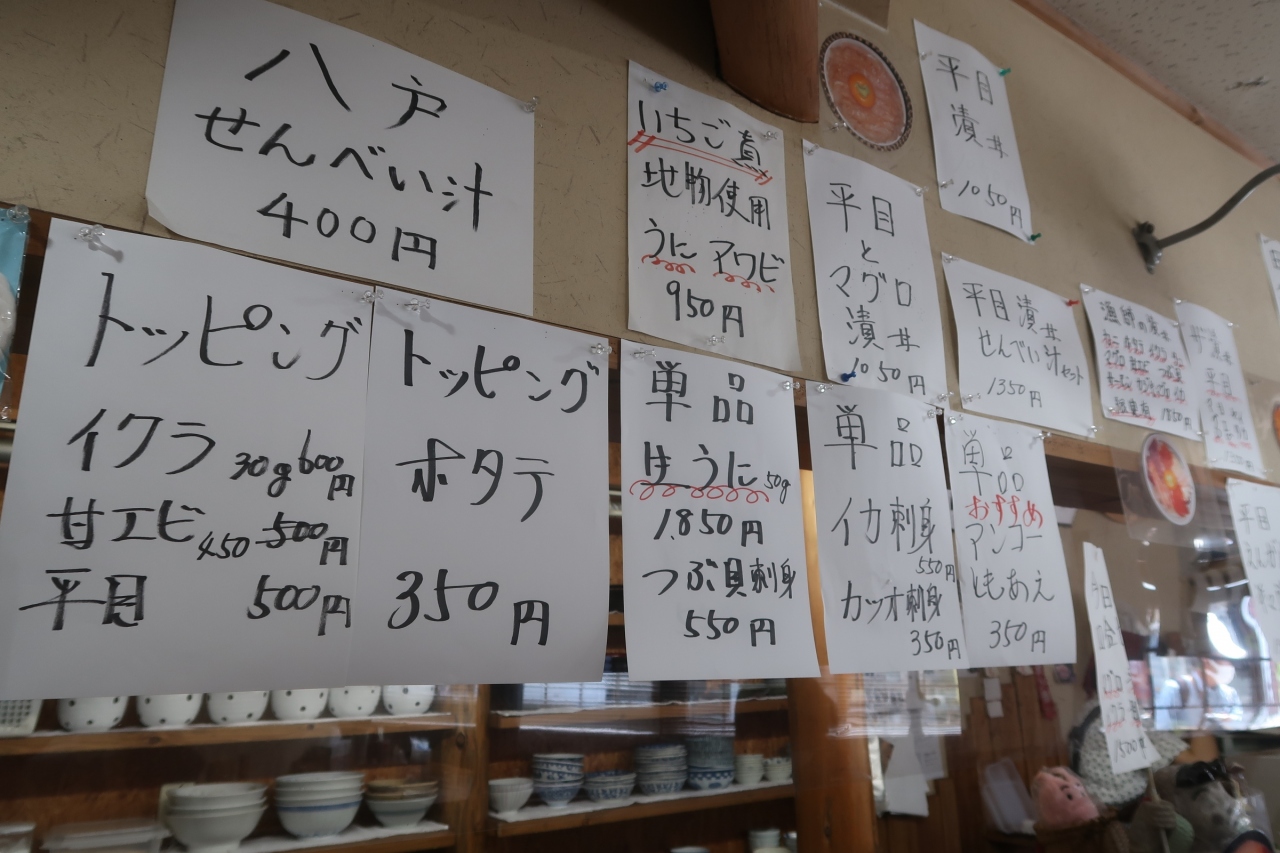 八戸
せんべい汁
400円
トッピング
イクラ 30g 600円
甘エビ 450 500円
平目 500円
トッピング
ホタテ
350円
いちご煮
地物使用
うに アワビ
950円
単品
生うに 50g
1,850円
つぶ貝刺身
550円
平目
と
マグロ
漬丼
1050円
単品
イカ刺身
550円
カツオ刺身
350円
平目
漬丼
1050円
平目漬丼
せんべい汁セット
1350円
単品
おすすめ
マンコー
ともあえ
350円
漁師の漬丼
平目
平目
1500円